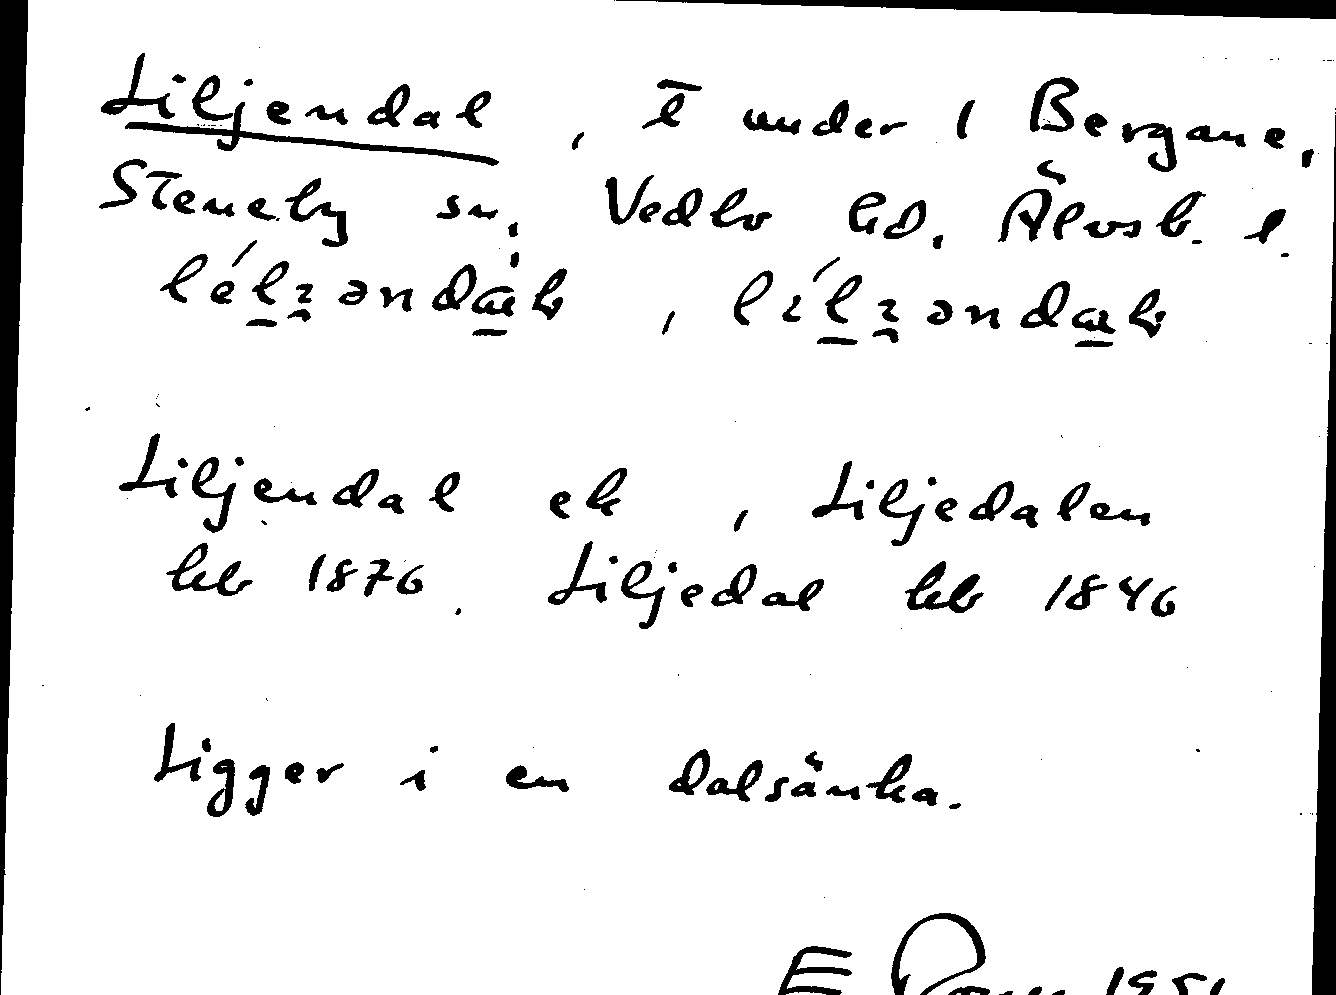 Liljendal, t under 1 Bergane,
Steneby sn, Vedbo hd, Älvsb. l.
Liljendal ek, Liljedalen
hfb 1876. Liljedal hfb 1846
Ligger i en dalsänka.
E 1951